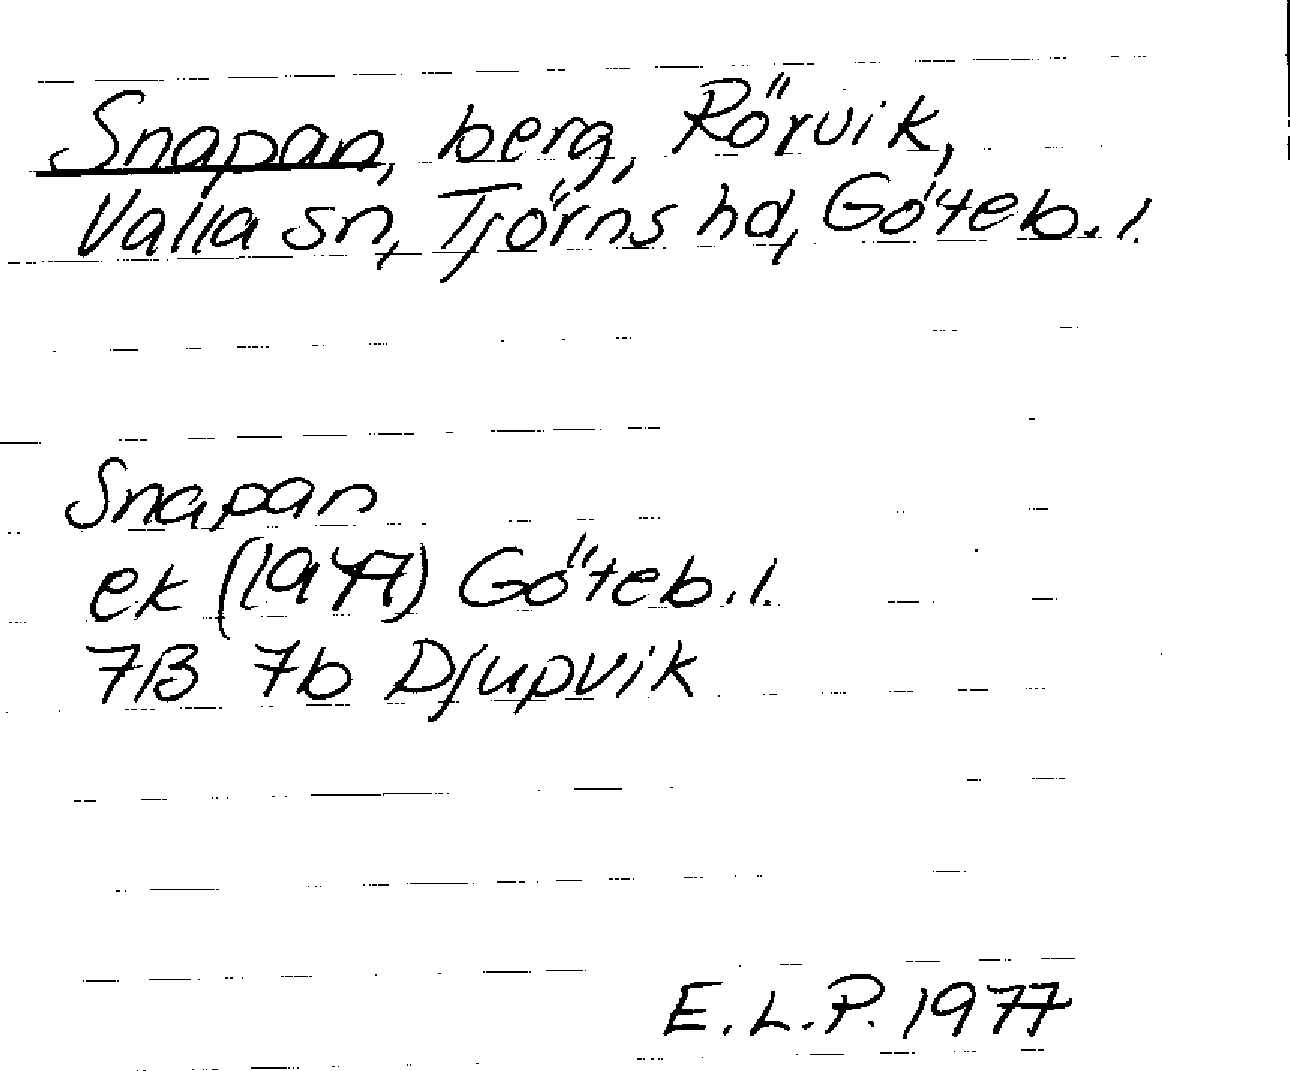 Snapan, berg, Rörvik,
Valla sn, Tjörns hd, Göteb. l.
Snapan
ek (1977) Göteb. l.
7B 7b Djupvik
E. L. P. 1977